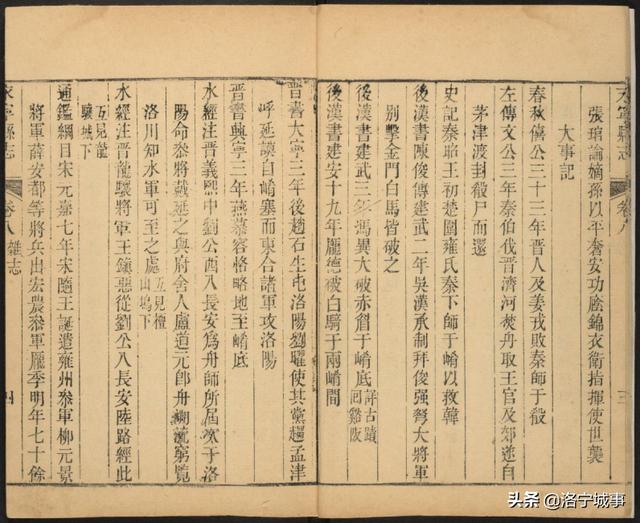 永寧縣志
卷八
三
張瑄論嫡孫以平奢安功廕錦衣衛指揮使世襲
大事記
春秋僖公三十三年晋人及姜戎敗秦師于殽
左傳文公三年秦伯伐晋濟河焚舟取王官及郊遂自
茅津渡封殽尸而還
史記秦昭王初楚圍雍氏秦下師于崤以救韓
後漢書陳俊傳建武二年吳漢承制拜俊強弩大將軍
别擊金門白馬皆破之
後漢書建武三年馮異大破赤眉于崤底詳古蹟回谿阪
後漢書建安十九年龐德破白騎于兩崤間
晋書大寧三年後趙石生屯洛陽劉曜使其黨趨孟津
呼延謨自崤塞而東合諸軍攻洛陽
晋書興寧三年燕慕容恪略地至崤底
水經注晋義熙中劉公西入長安舟師所屆次于洛
陽命叅將戴延之與府舍人盧道元卽舟遡流窮覽
洛川知水軍可至之處互見檀山塢下
水經注晋龍驤將軍王鎮惡從劉公入長安陸路經此
互見龍驤城下
通鑑綱目宋元嘉七年宋隨王誕遣雍州叅軍柳元景
將軍薛安都等將兵出宏農叅軍龐季明年七十餘
永寧縣志
卷八 雜志
四
头条 @洛宁城事